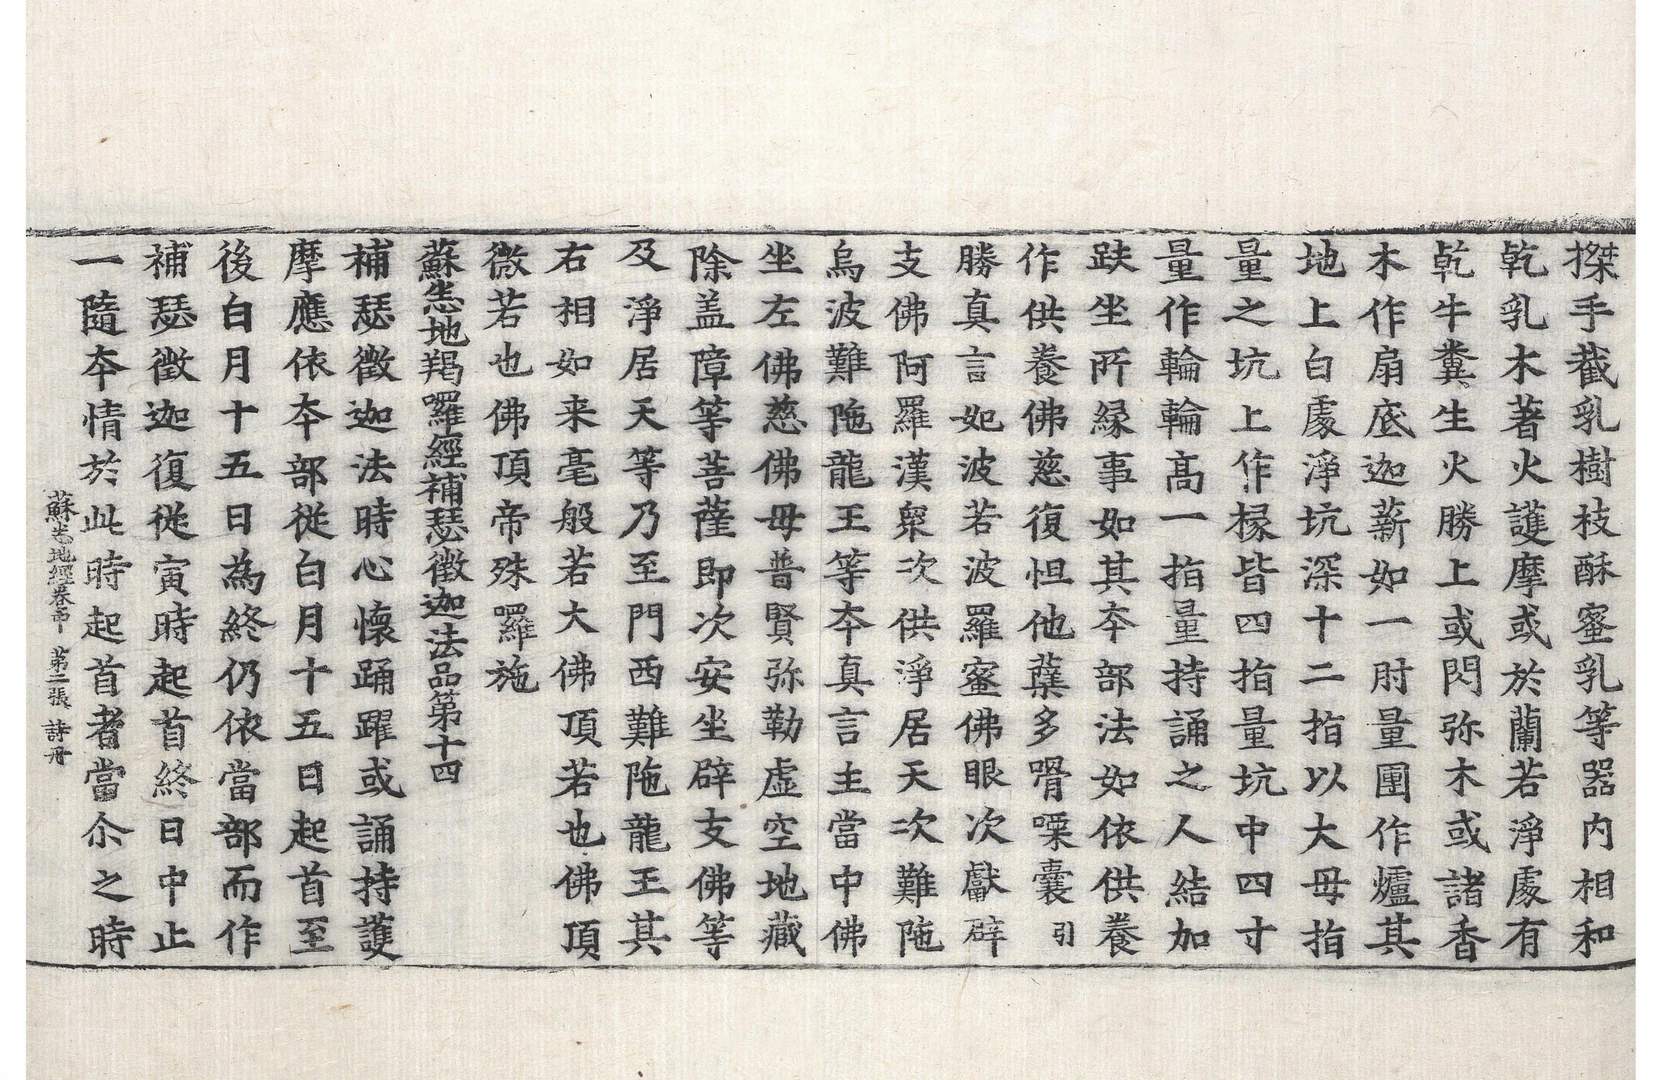 搩手截乳樹枝酥蜜乳等器內相和
乾乳木著火護摩或於蘭若淨處有
乾牛糞生火勝上或閃弥木或諸香
木作扇底迦薪如一肘量圍作爐其
地上白處淨坑深十二指以大母指
量之坑上作椽皆四指量坑中四寸
量作輪輪高一指量持誦之人結加
趺坐所縁事如其夲部法如依供養
作供養佛慈復怛他蘖多嗗㗚囊引
勝真言妃波若波羅蜜佛眼次獻辟
支佛阿羅漢衆次供淨居天次難陁
烏波難陁龍王等夲真言主當中佛
坐左佛慈佛母普賢弥勒虛空地藏
除盖障等菩薩即次安坐辟支佛等
及淨居天等乃至門西難陁龍王其
右相如来毫般若大佛頂若也佛頂
微若也佛頂帝殊囉施
蘇悉地羯囉經補瑟徵迦法品第十四
補瑟徵迦法時心懷踊躍或誦持護
摩應依夲部從白月十五日起首至
後白月十五日為終仍依當部而作
補瑟徵迦復從寅時起首終日中止
一隨夲情於此時起首者當尒之時
蘇悉地經卷中 苐二張 詩冊